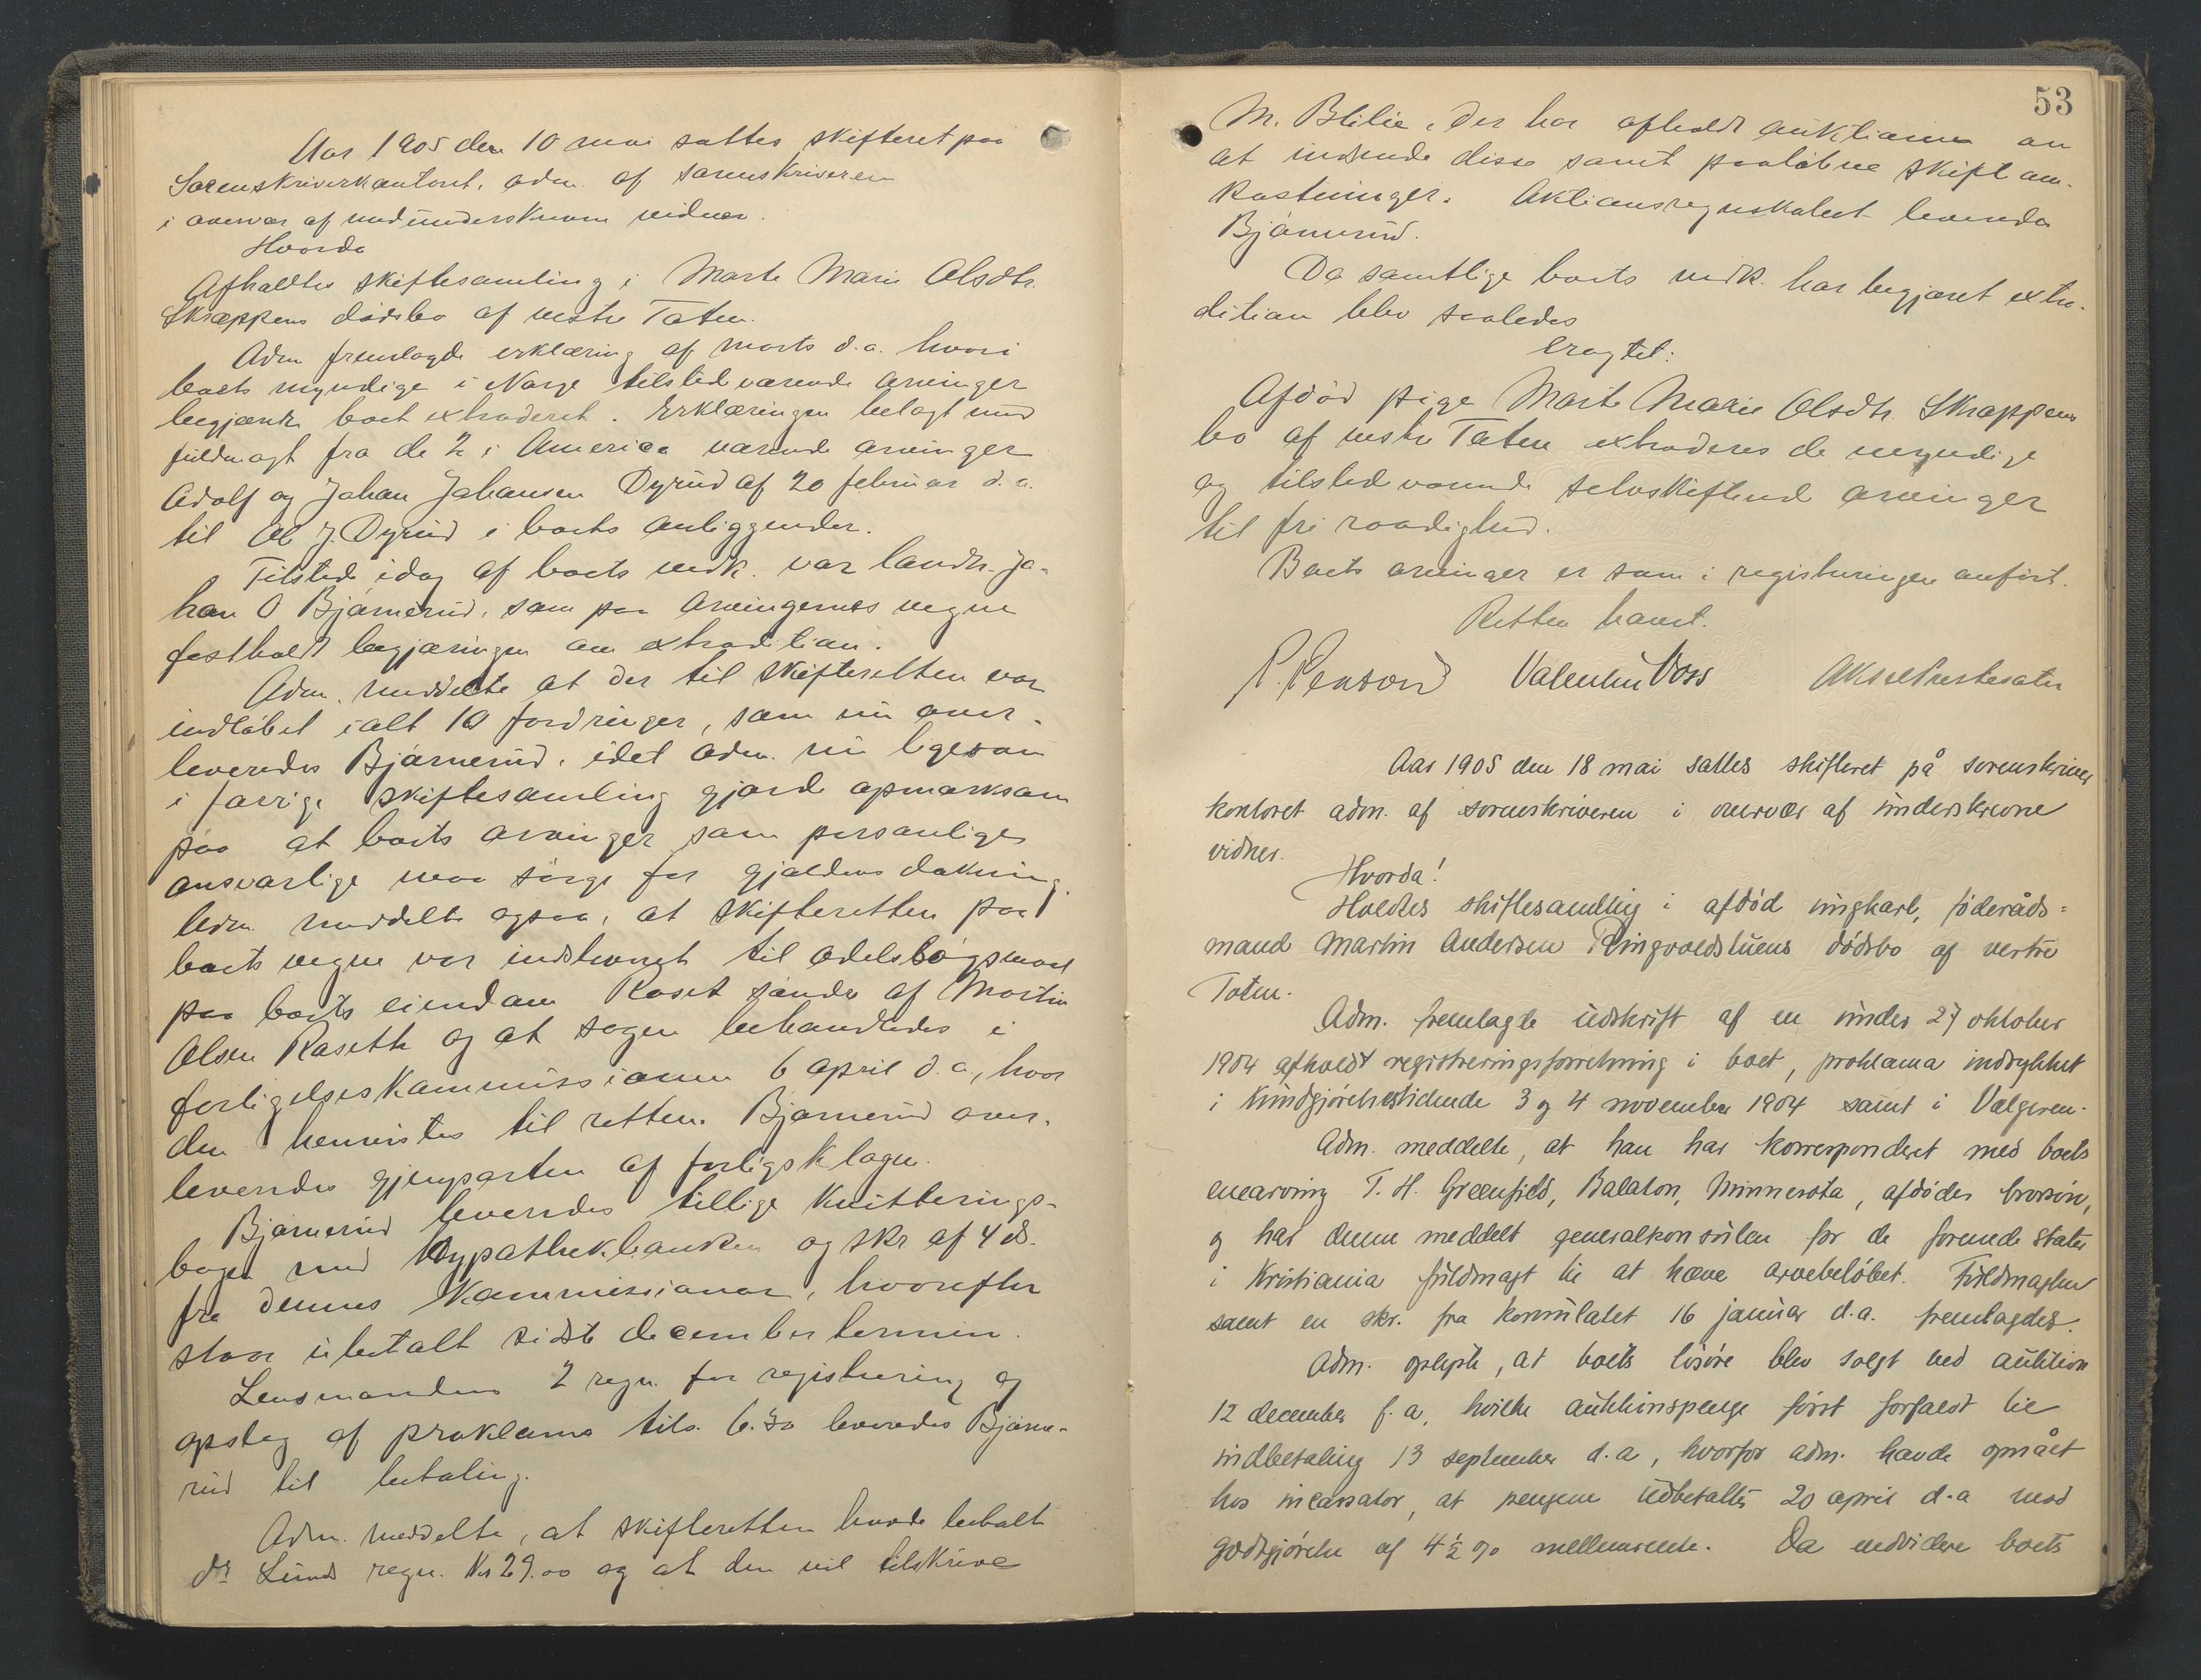 Aar 1905 den 10 mai sattes skifteret paa
Sorenskriverkontoret, adm. af sorenskriveren
i overvær af medunderskrevne vidner.
Hvorda
Afholdtes skiftesamling i Marte Marie Olsdtr.
Skræppens dødsbo af vestre Toten.
Adm fremlagde erklæring af marts d.a. hvori
boets myndige i Norge tilstedværende arvinger
begjærte boet extraderet. Erklæringen belagt med
fuldmagt fra de 2 i America værende arvinger
Adolf og Johan Johansen Dyrud af 20 februar d.a.
til Ol J Dyrud i boets anliggender.
Tilstede idag af boets vedk. var landh. Jo-
han O Bjørnerud, som paa arvingernes vegne
fastholdt begjæringen om extradition.
Adm. meddelte at der til skifteretten var
indløbet ialt 10 fordringer, som nu over-
leveredes Bjørnerud, idet adm. nu ligesom
i forrige skiftesamling gjorde opmærksom
paa at boets arvinger som personlige
ansvarlige maa sørge for gjældens dækning.
Adm. meddelte ogsaa, at skifteretten paa
boets vegne var indstevnet til odelssøgsmaal
paa boets eiendom Roset søndre af Martin
Olsen Rosetth og at sagen behandledes i
forligelseskommissionen 6 april d.a., hvor
den henvistes til retten. Bjørnerud over-
leveredes gjenparten af forligsklagen.
Bjørnerud leveredes tillige kvitterings-
bogen med Hypothekbanken og skr af 4 ds.
fra dennes kommissionær, hvorefter
staar ubetalt sidste december termin.
Lensmandens 2 regn. for registrering og
opslag af proklama tils. 6.30 leveredes Bjørne-
rud til betaling.
Adm. meddelte, at skifteretten havde betalt
dr Lunds regn. Kr 29.00 og at den vil tilskrive
53
M. Blilie, der har afholdt auktionen om
at indsende disse samt paaløbne skifteom-
kostninger. Aktionsregnskabet leveredes
Bjørnerud.
Da samtlige boets vedk. har begjæret extra-
dition blev saaledes
eragtet:
Afdød pige Marte Marie Olsdtr. Skræppens
bo af vestre Toten extraderes de myndige
og tilstedværende selvskiftende arvinger
til fri raadighed.
Boets arvinger er som i registreringen anført.
Retten hævet.
Valentin Voss
Aar 1905 den 18 mai sattes skifteret på sorenskriver
kontoret adm. af sorenskriveren i overvær af underskrevne
vidner.
Hvorda!
Holdtes skiftesamling i afdød ungkarl, føderåds=
mand Martin Andersen Ringvoldstuens dødsbo af vestre
Toten.
Adm. fremlagde udskrift af en under 27 oktober
1904 afholdt registreringsforretning i boet, proklama indrykket
i kundgjørelsestidende 3 og 4 november 1904 samt i Vælgeren.
Adm. meddelte, at han har korresponderet med boets
enearving T. H. Greenfield, Balaton, Minnesota, afdødes brorsøn,
og har denne meddelt generalkonsulen for de forenede stater
i Kristiania fuldmagt til at hæve arvebeløbet. Fuldmagten
samt en skr. fra konsulatet 16 januar d.a. fremlagdes.
Adm. oplyste, at boets løsøre blev solgt ved auktion
12 december f.a, hvilke auktionspenge først forfaldt til
indbetaling 13 september d.a, hvorfor adm. havde opnået
hos incassator, at pengene udbetaltes 20 april d.a mod
godtgjørelse af 4½ % mellemrente. Da endvidere boets